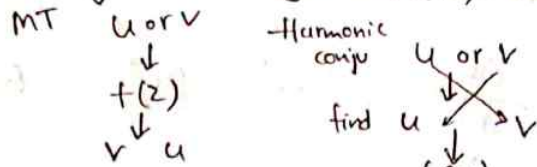 MT u or v
f(z)
v u
Harmonic
conju u or v
find u v